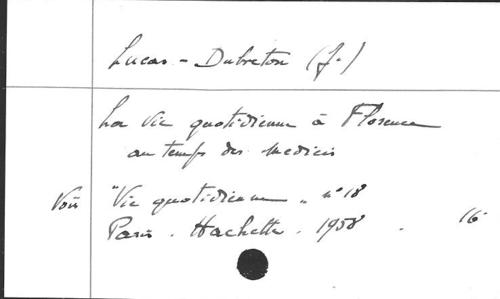 Lucas-Dubreton (J.)
La Vie quotidienne à Florence
au temps des Medicis
Voir "Vie quotidienne" n° 18
Paris. Hachette. 1958. 16°